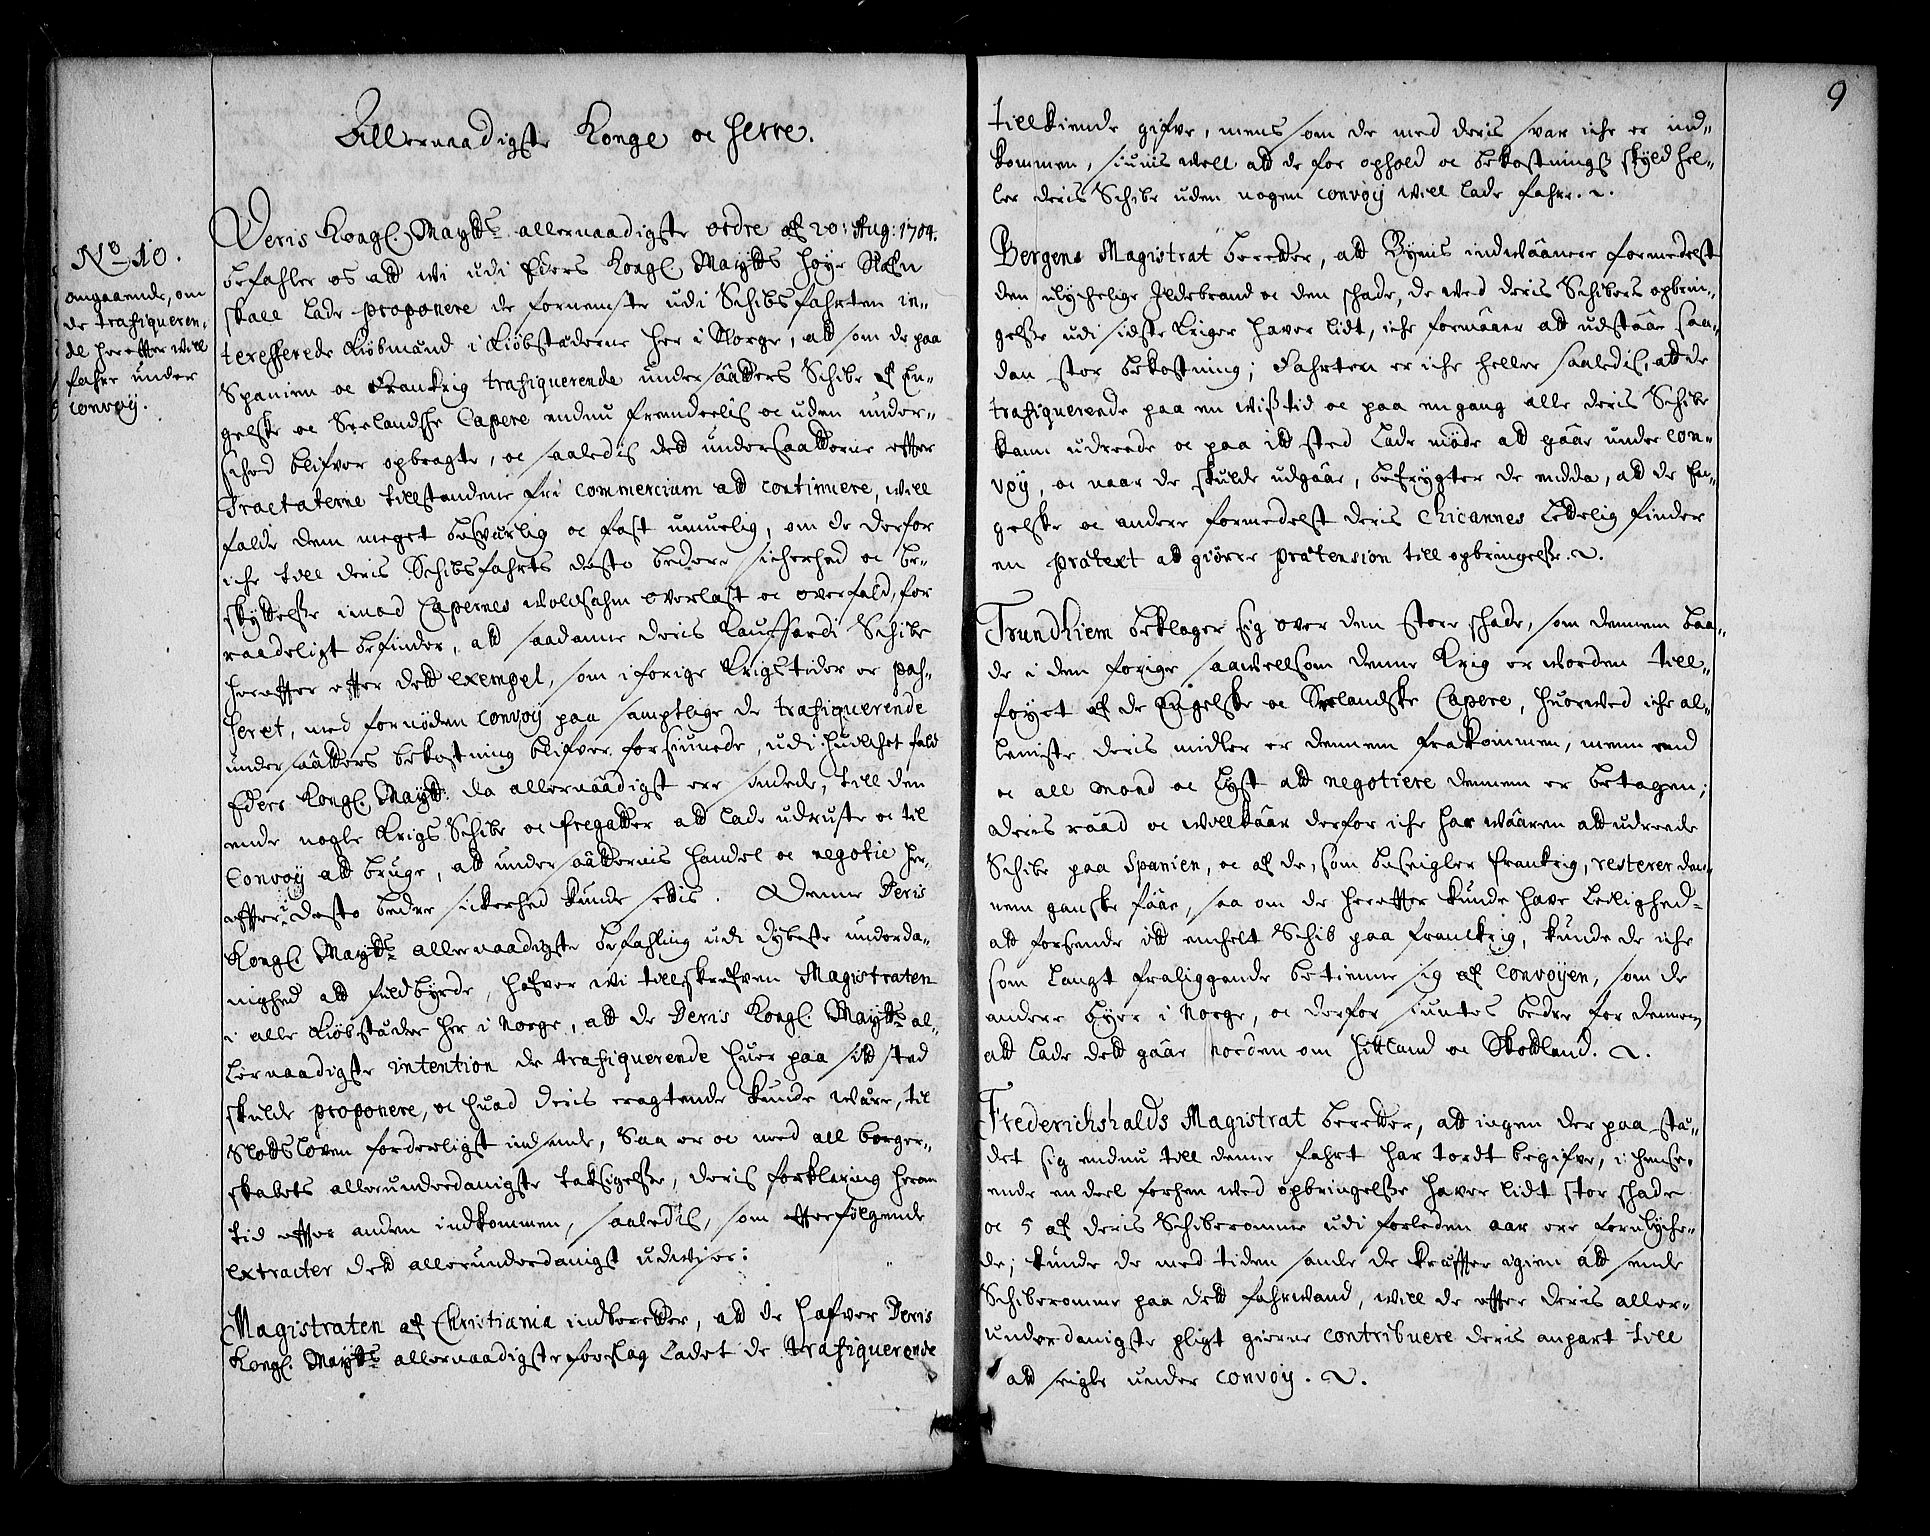 Allernaadigste Konge oc Herre.
No 10.
angaaende, om
de trafiqueren-
de herefter will
fahre under
convoy.
Deris Kongl. Maytts allernaadigste ordre af 20: Aug: 1704.
befahler os att wi udi Eders Kongl. Maytts høye Nafn
skall lade proponere de fornemste udi Schibsfahrten in-
teresserede Kiøbmænd i Kiøbstæderne her i Norge, att som de paa
Spanien oc Franckrig trafiquerende undersaatters Schibe af En-
gelske oc Seelandske Capere endnu fiendeelig oc uden under-
scheed blifver opbragte, oc saaledis dett undersaatterne efter
Tractaterne tillstændene fri commercium att continuere, will
falde dem meget besværlig oc fast umuelig, om de derfor
iche till deris Schibsfahrts desto bedere sicherhed oc be-
skyttelse imod Capernes woldsahm overlast oc overfald, for
raadeligt befinder, att saadanne deris Kauffardi Schibe
herefter efter dett exempel, som i forige Krigstider er pas-
seret, med fornøden convoy paa samptlige de trafiquerende
undersaatters bekostning blifver forsiunede, udi huilchet fald
Eders Kongl. Maytt. da allernaadigst ere sindede, till den
ende nogle Krigs Schibe oc fregatter att lade udruste oc til
Convoy att bruge, att undersaatternis handel oc negotie her-
efter i desto bedre sickerhed kunde settis. Denne Deris
Kongl. Maytts allernaadigste befahling udi dybeste underda-
nighed att fuldbyrde, hafver wi tillskrefven Magistraten
i alle Kiøbstæder her i Norge, att de Deris Kongl. Maytts al-
lernaadigste intention de trafiquerende huer paa sitt sted
skulde proponere, oc huad deris eragtende kunde være, til
Slotsloven forderligst indsende, Saa er oc med all borger-
skabets allerunderdanigste taksigelse, deris forklaring herom
tid efter anden indkommen, saaledis, som efterfølgende
extracter dett allerunderdanigst udwiser:
Magistraten af Christiania indberetter, att de hafver Deris
Kongl. Maytts allernaadigste forslag ladet de trafiquerende
9
tillkiende gifve, mens som de med deris svar iche er ind-
kommen, siunis well att de for ophold oc bekostnings skyld hel-
ler deris Schibe uden nogen convoy will lade fahre.
Bergens Magistrat beretter, att Byens indwaanere formedelst
den ulychelige Ildebrand oc den schade, de wed deris Schibers opbrin-
gelse udi sidste Kriger haver lidt, iche formaaer att udstaae saa-
dan stor bekostning; Fahrten er iche heller saaledis, att de
trafiquerende paa en wiß tid oc paa en gang alle deris Schibe
kand udreede oc paa itt sted lade møde att gaae under con-
voy, oc naar de skulde udgaae, befrygter de endda, at de En-
gelske oc andere formedelst deris Chicannes lettelig finder
en prætext at giøre prætension till opbringelse.
Trundhiem beklager sig over den store schade, som dennem baa-
de i den forige saawellsom denne Krig er worden till-
føyet af de Engelske oc Seelandske Capere, huorwed iche al-
leniste deris midler er dennem frakommen, menn end
oc all mod oc lyst att negotiere dennem er betagen;
deris raad oc willkaar derfor iche har wæren att udreede
Schibe paa Spanien, oc af de, som beseigler Franckrig, resterer den-
nem ganske faae, saa om de herefter kunde have Leilighed
att forsende itt enchelt Schib paa Franckrig, kunde de iche
som langt fraliggende betienne sig af Convoyen, som de
andere byer i Norge, oc derfor siuntes bedre for dennem
att lade dett gaae norden om Hitland oc Skottland.
Frederichshalds Magistrat beretter, att ingen der paa stæ-
det sig endnu till denne fahrt har tordt begifve, i henseen-
ende en deel forhen wed opbringelse haver lidt stor schade
oc 5 af deris Schiberomme udi forleden aar ere forulyche-
de; kunde de med tiden samle de kræfter igien att sende
Schiberomme paa dett fahrwand, will de efter deris aller-
underdanigste pligt gierne contribuere deris anpart till
att seigle under convoy.